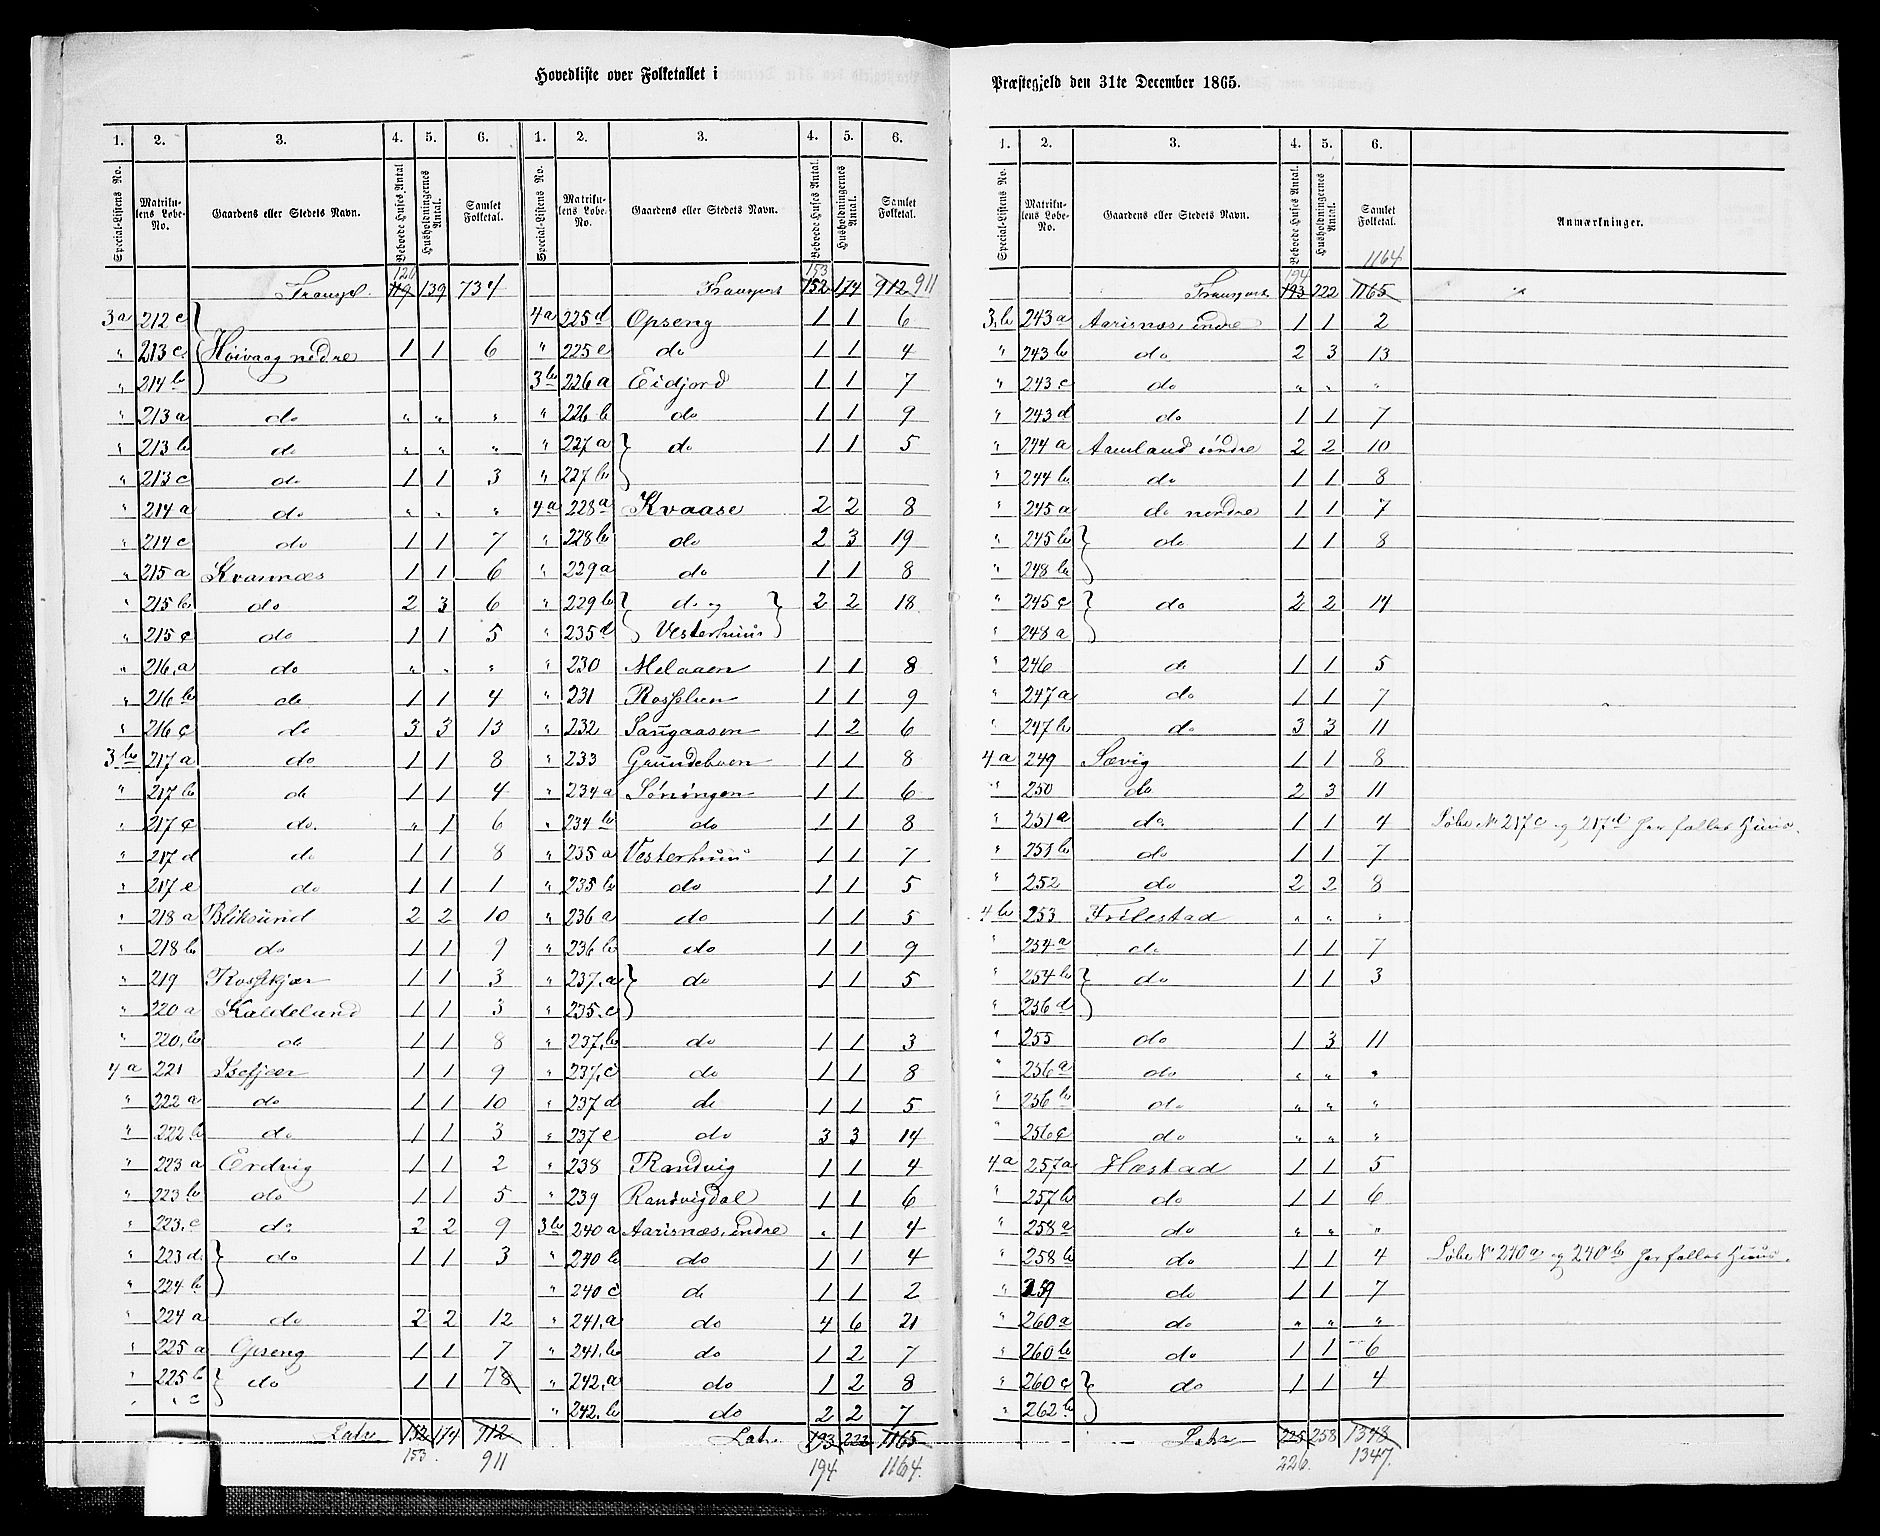 Hovedliste over Folketallet i
1. 2. 3. 4. 5. 6. 1. 2. 3. 4. 5. 6.
Special-Listens No. Matrikulens Løbe-No. Gaardens eller Stedets Navn. Beboede Huses Antal Husholdningernes Antal. Samlet Folketal. Special-Listens No. Matrikulens Løbe-No. Gaardens eller Stedets Navn. Beboede Huses Antal. Husholdningernes Antal. Samlet Folketal.
120
Transpt. 119 139 734
3a 212c
" 213c Høivaag nedre 1 1 6
" 214b
" 213a do " " "
" 213b do " " "
" 213c do 1 1 3
" 214a do " " "
" 214c do 1 1 7
" 215a Kvannæs 1 1 6
" 215b do 2 3 6
" 215c do 1 1 5
" 216.a do " " "
" 216b do 1 1 4
" 216c do 3 3 13
3b 217a do 1 1 8
" 217b do 1 1 4
" 217c do. " 1 6
" 217d do 1 1 8
" 217e do 1 1 1
" 218a Bliksund 2 2 10
" 218b do 1 1 9
" 219 Kosskjær 1 1 3
" 220a Kaldeland 1 1 3
" 220.b do 1 1 8
4a 221 Isefjær 1 1 9
" 222a do 1 1 10
" 222b do 1 1 3
" 223a Erdvig 1 1 2
" 223b do 1 1 5
" 223.c do 2 2 9
" 223d do 1 1 3
" 224b
" 224a do 2 2 12
" 225a Opseng 1 1 7
" 225b do 1 1 78
" " c
Latus 152 174 912
153. 911
153
Transport 152 174 912 911
4a 225d Opseng 1 1 6
" 225e do 1 1 4
3b 226a Eidjord 1 1 7
" 226b do 1 1 9
" 227a do 1 1 5
" 227b
4a 228a Kvaase 2 2 8
" 228b do 2 3 19
" 229a do 1 1 8
" 229b do og 2 2 18
" 235d Vesterhuus
" 230 Melaaen 1 1 8
" 231 Rosselien 1 1 9
" 232 Saugaasen 1 2 6
" 233 Grundeboen 1 1 8
" 234a Søningen 1 1 6
" 234b do 1 1 8
" 235a Vesterhuus 1 1 7
" 235b do 1 1 5
" 236a do 1 1 5
" 236b do 1 1 9
" 237.a do 1 1 5
" 235.c
" 237.b do 1 1 3
" 237.c do 1 1 8
" 237d do 1 1 5
" 237e do 3 3 14
" 238 Randvig 1 1 4
" 239 Randvigdal 1 1 6
3b 240a Aarisnæs, indre " 1 4
" 240b do 1 1 4
" 240c do 1 1 2
" 241.a do 4 6 21
" 241.b do 1 2 7
" 242.a do 1 2 8
" 242.b do 2 2 7
Latus 193 222 1165
194 1164.
Præstegjeld den 31te December 1865.
1. 2. 3. 4. 5. 6.
Special-Listens No. Matrikulens Løbe-No. Gaardens eller Stedets Navn. Beboede Huses Antal. Husholdningernes Antal. Samlet Folketal. Anmærkninger.
194 1164
Transport 193 222 1165
3.b 243a Aarisnæs, indre 1 1 2
" 243b do 2 3 13
" 243c do " " "
" 243d do 1 1 7
" 244a Aamland søndre 2 2 10
" 244b do 1 1 8
" 245a do nordre 1 1 7
" 245b do 1 1 8
" 248b
" 245c do 2 2 14
" 248a
" 246 do 1 1 5
" 247a do 1 1 7
" 247b do 3 3 11
4a 249 Sævig 1 1 8
" 250 do 2 3 11
" 251a do 1 1 4 Løbe No 217c og 217d har fælles Huus.
" 251b do 1 1 7
" 252 do 2 2 8
4b 253 Frilestad " " "
" 254a do 1 1 7
" 254b do 1 1 3
" 256d
" 255 do 1 3 11
" 256a do " " "
" 256b do " " "
" 256c do " " "
4a 257a Hæstad 1 1 5
" 257b do 1 1 6
" 258a do " " "
" 258b do 1 1 4 Løbe No 240a og 240b har fælles Huus.
" 259 do 1 1 7
" 260a do " " "
" 260b do 1 1 6
" 260c do 1 1 4
" 262b
Latus 225 258 1348
226. 1347.